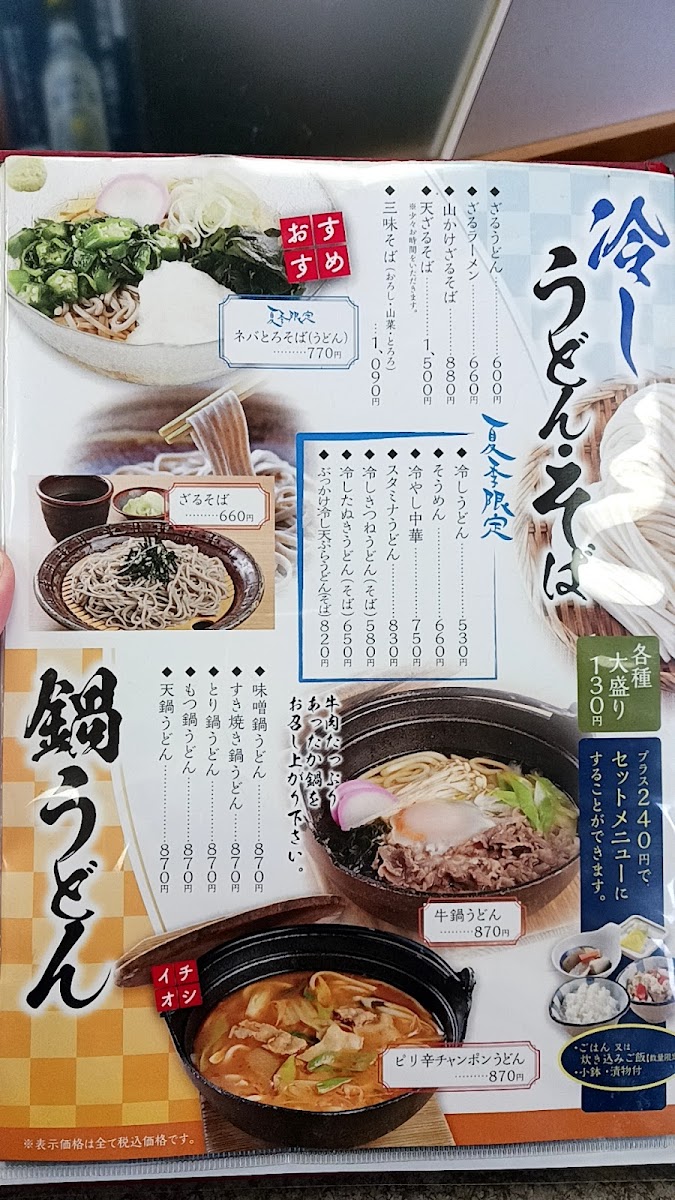 冷し
うどん・そば
◆ざるうどん………600円
◆ざるラーメン………660円
◆山かけざるそば………880円
◆天ざるそば………1,500円
※少々お時間をいただきます。
◆三味そば（おろし・山菜・とろろ）
………1,090円
おすすめ
夏季限定
ネバとろそば(うどん)
………770円
夏季限定
◆冷しうどん………530円
◆そうめん………660円
◆冷やし中華………750円
◆スタミナうどん………830円
◆冷しきつねうどん(そば)580円
◆冷したぬきうどん(そば)650円
◆ぶっかけ冷し天ぷらうどん(そば)820円
ざるそば
………660円
各種
大盛り
130円
プラス240円で、
セットメニューに
することができます。
・ごはん 又は
炊き込みご飯【数量限定
・小鉢・漬物付
鍋うどん
◆味噌鍋うどん………870円
◆すき焼き鍋うどん………870円
◆とり鍋うどん………870円
◆もつ鍋うどん………870円
◆天鍋うどん………870円
牛肉たっぷり
あったか鍋を
お召し上がり下さい。
牛鍋うどん
………870円
イチオシ
ピリ辛チャンポンうどん
………870円
※表示価格は全て税込価格です。